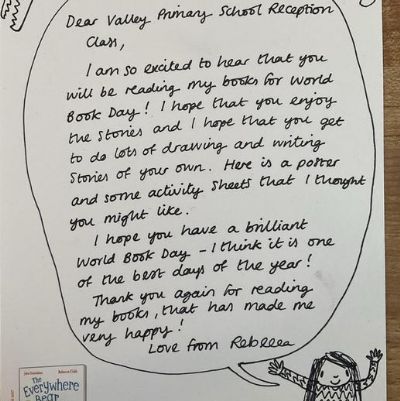 Dear Valley Primary School Reception
Class,
I am so excited to hear that you
will be reading my books for World
Book Day! I hope that you enjoy
the stories and I hope that you get
to do lots of drawing and writing
stories of your own. Here is a poster
and some activity sheets that I thought
you might like.
I hope you have a brilliant
World Book Day - I think it is one
of the best days of the year!
Thank you again for reading
my books, that has made me
very happy!
Love from Rebecca
The
Everywhere
Bear